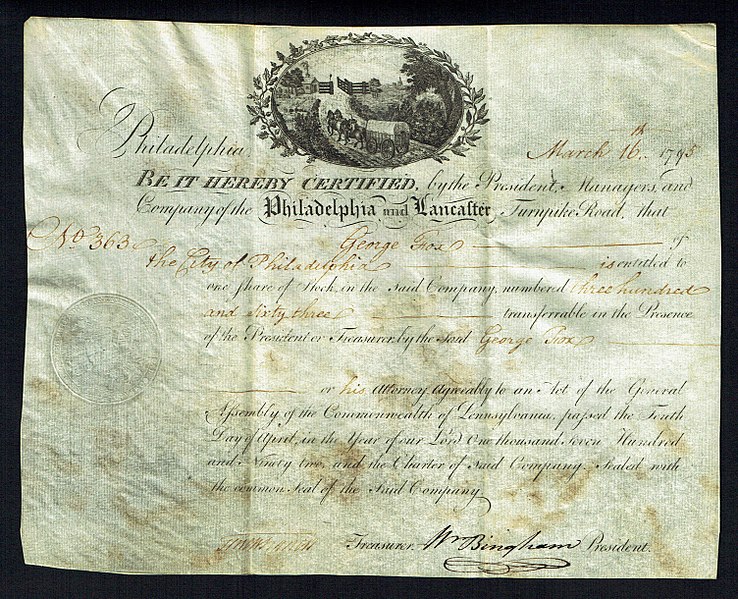 Philadelphia, March 16th. 1795
BE IT HEREBY CERTIFIED, by the President, Managers, and
Company of the Philadelphia and Lancaster Turnpike Road, that
No. 363 George Fox of
the City of Philadelphia is entitled to
one Share of Stock, in the Said Company, numbered three hundred
and sixty three transferrable in the Presence
of the President or Treasurer, by the Said George Fox
or his Attorney, Agreeably to an Act of the General
Assembly of the Commonwealth of Pennsylvania, passed the Tenth
Day of April, in the Year of our Lord One thousand Seven Hundred
and Ninety two, and the Charter of Said Company. Sealed with
the common Seal of the Said Company
Treasurer. Wm Bingham President.